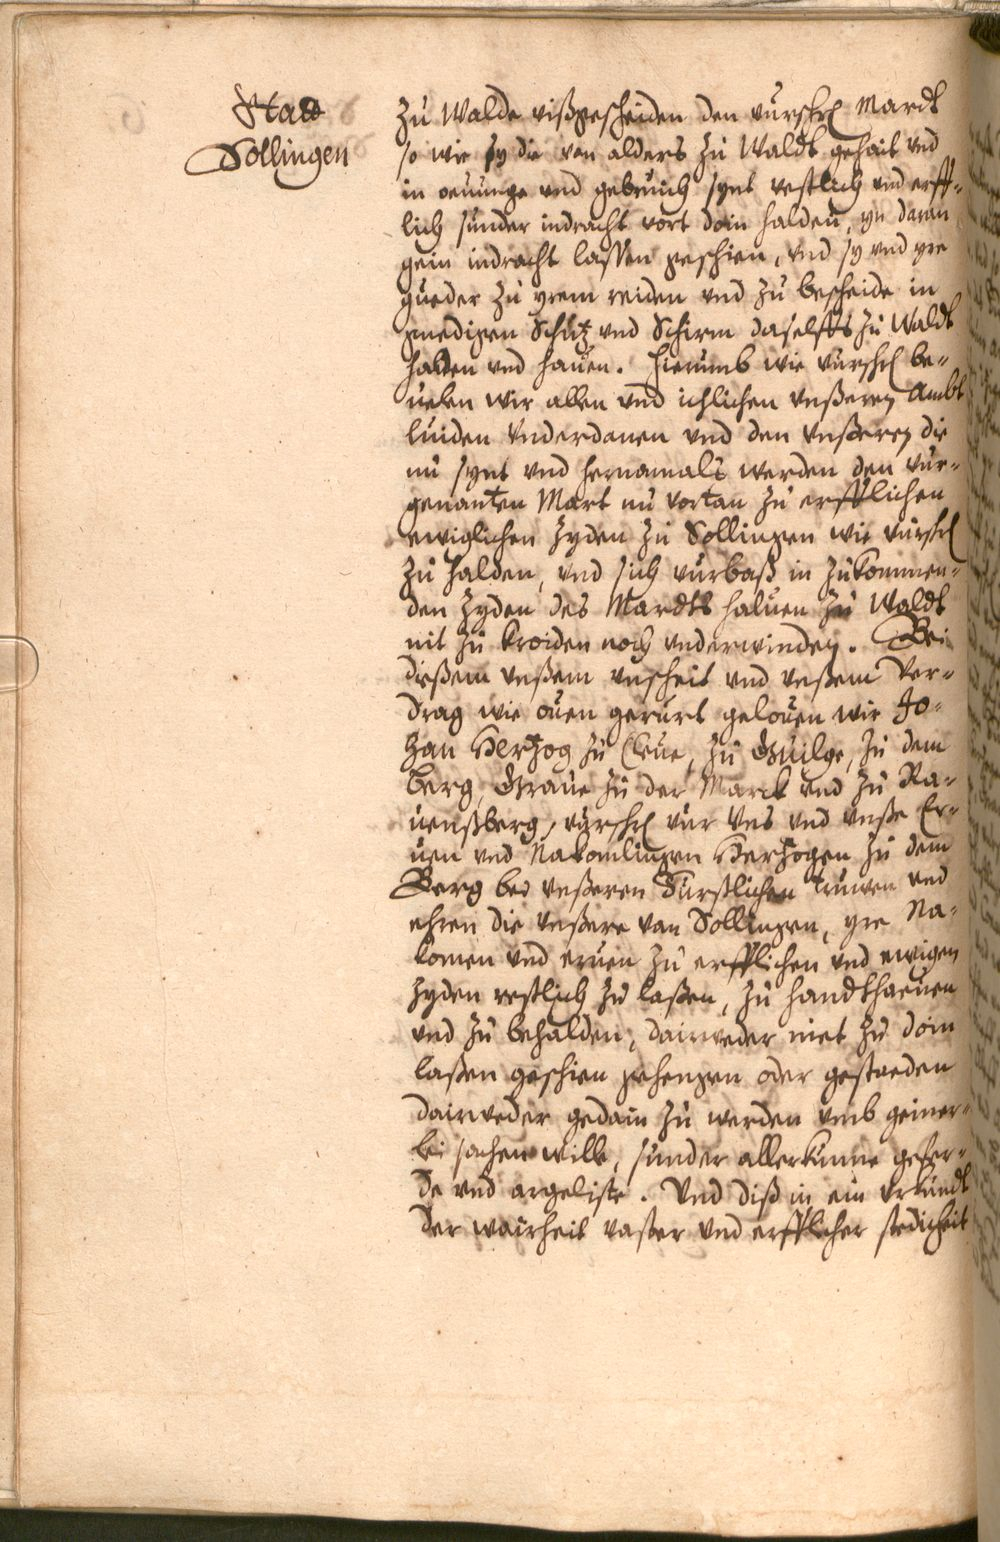 Statt
Sollingen
zu Walde vißgescheiden den vurschr Mardt
so wie sy die van alders zu Waldt gehait vnd
in oeuunge vnd gebruich synt vestlich vnd erff-
lich sunder indracht vort doin halden, yn daran
gein indracht lassen geschien, vnd sy vnd yre
gueder zu yrem reiden vnd zu bescheide in
gnedigen Schutz vnd Schirm daselffs zu Waldt
halden vnd hauen. Hierumb wie vurschr be-
uelen wir allen vnd ichlichen vnßeren Ambt
luiden vnderdanen vnd den vnßeren die
nu synt vnd hernamals werden den vur-
genanten Mart nu vortan zu erfflichen
ewiglichen zyden zu Sollingen wie vurschr
zu halden, vnd sich vurbaß in zukommen-
den zyden des Mardts haluen zu Waldt
nit zu kroiden noch vnderwinden. Bei
dießem vnßem vnscheit vnd vnßem Ver-
drag wie ouen gerurt gelouen wir Jo-
han Hertzog zu Cleue, zu Guilge, zu dem
Berg, Graue zu der Marck vnd zu Ra-
uenßberg, vurschr vur Vns vnd vnße Er-
uen vnd Nakomlingen Hertzogen zu dem
Berg bei vnßeren Furstlichen truwen vnd
ehren die vnßere van Sollingen, yre Na-
komen vnd eruen zu erfflichen vnd ewigen
zyden vestlich zu laßen, zu handthauen
vnd zu behalden, dairweder niet zu doin
laßen geschien gehengen oder gestaeden
dairweder gedain zu werden vmb geiner-
lei sachen wille, sunder allerkunne gefer-
de vnd argeliste. Vnd diß in ein vrkundt
der wairheit vaster vnd erfflicher stedicheit